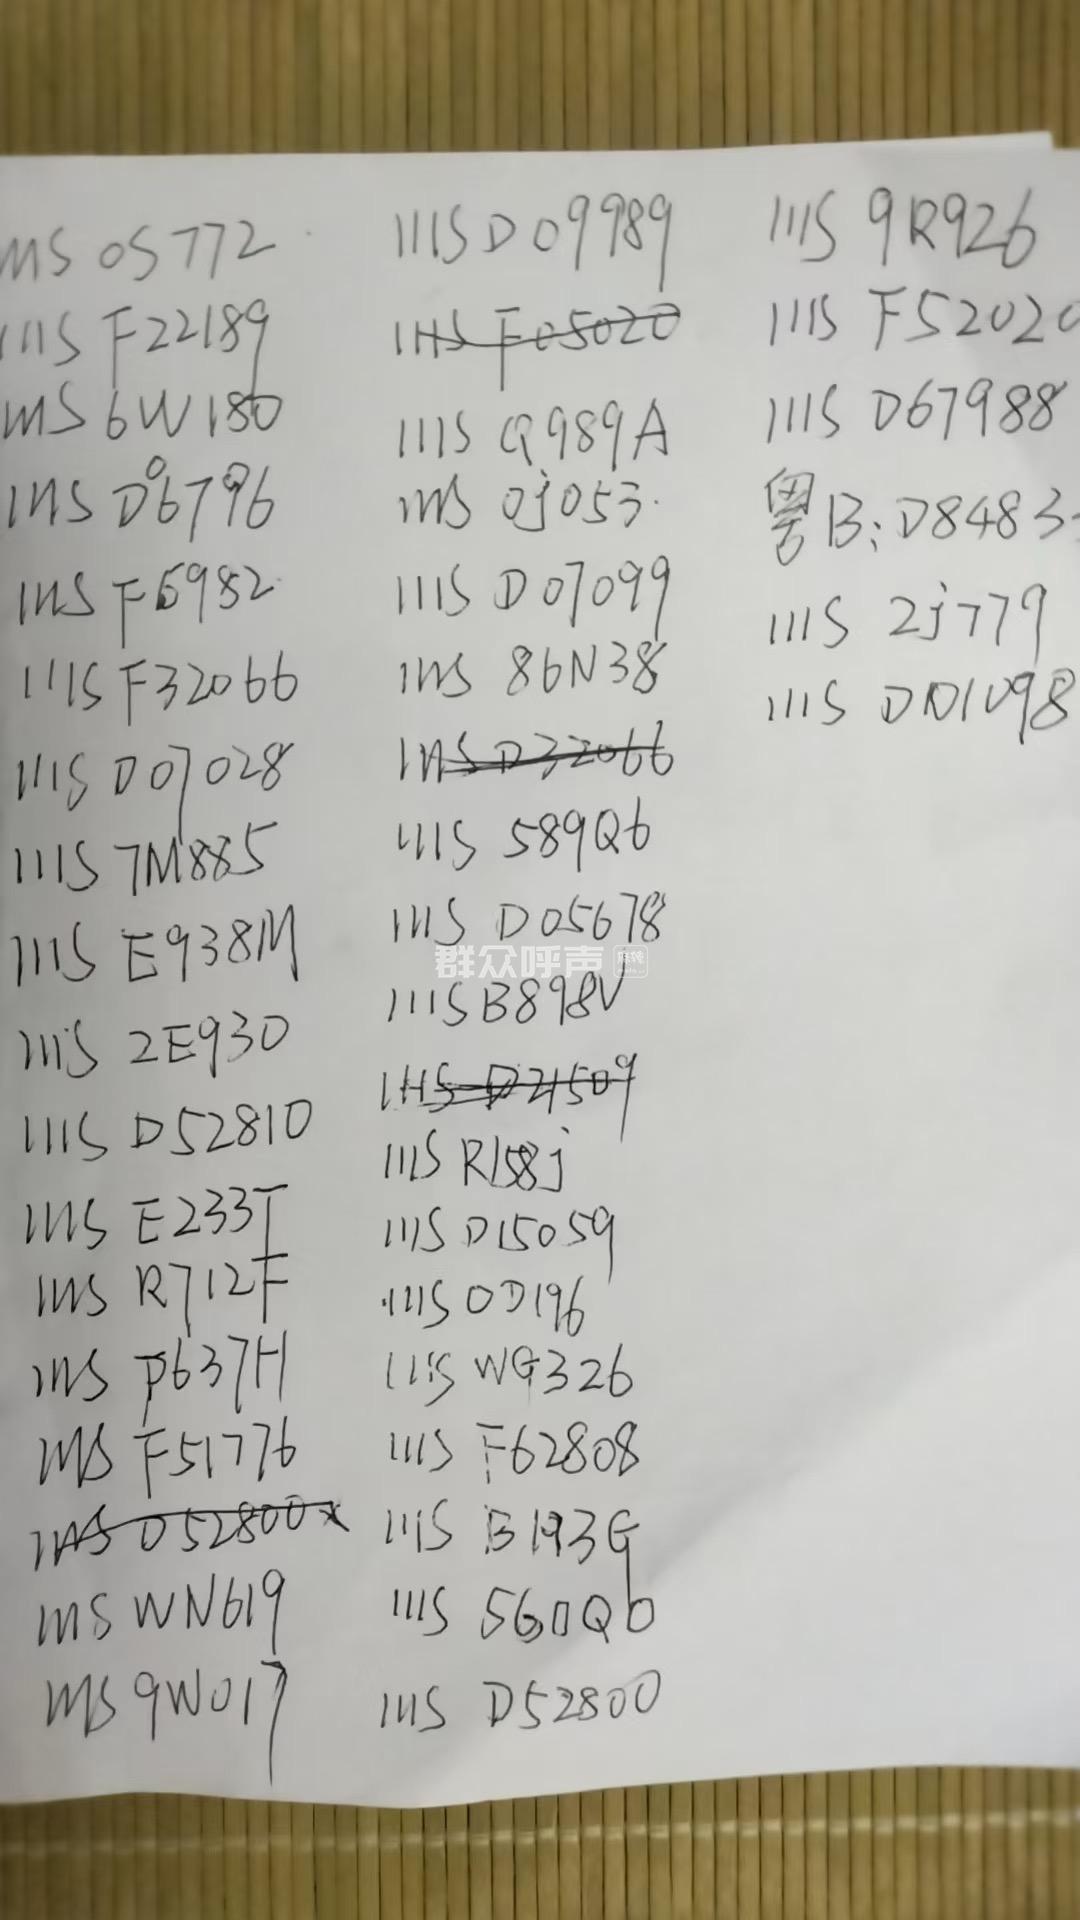 川S 0S772
川S F22189
川S 6W180
川S D06796
川S F6982
川S F32066
川S D07028
川S 7M885
川S E938M
川S 2E930
川S D52810
川S E233T
川S R712F
川S P637H
川S F51776
川S D52800x
川S WN619
川S 9W017
川S D09989
川S F05020
川S Q989A
川S 0j053
川S D07099
川S 86N38
川S D32066
川S 589Q6
川S D05678
川S B898V
川S D21509
川S R158j
川S D15059
川S 0D196
川S WG326
川S F62808
川S B193G
川S 560Q6
川S D52800
川S 9R926
川S F52020
川S D67988
粤B: D8483
川S 2j779
川S DD1098
群众呼声
麻辣